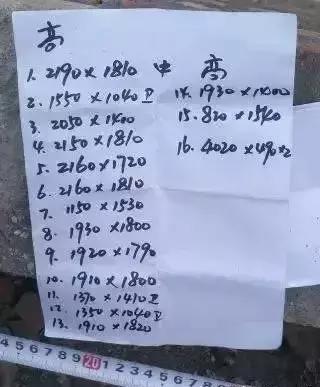 高
1. 2190×1810 中
2. 1550×1040
3. 2050×1400
4. 2150×1810
5. 2160×1720
6. 2160×1810
7. 1150×1530
8. 1930×1800
9. 1920×1790
10. 1910×1800
11. 1370×1410
12. 1350×1040
13. 1910×1820
高
14. 1930×1400
15. 830×1540
16. 4020×490×2
4 5 6 7 8 9 20 1 2 3 4 5 6 7 8 9